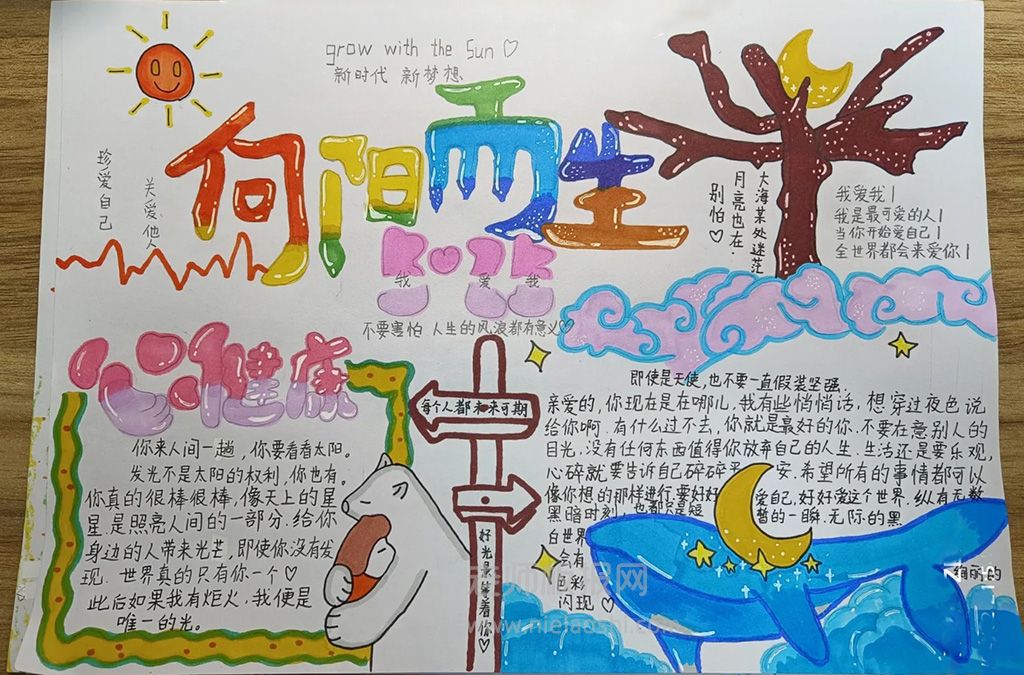 grow with the Sun ♡
新时代 新梦想
向阳而生
珍爱自己
关爱他人
我 爱 我
不要害怕 人生的风浪都有意义♡
大海某处迷茫
月亮也在.
别怕♡
我爱我!
我是最可爱的人!
当你开始爱自己!
全世界都会来爱你!
心理健康
你来人间一趟，你要看看太阳。
发光不是太阳的权利，你也有。
你真的很棒很棒，像天上的星
星.是照亮人间的一部分.给你
身边的人带来光芒，即使你没有发
现.世界真的只有你一个♡
此后如果我有炬火，我便是
唯一的光。
每个人都未来可期
好光景等着你♡
即使是天使,也不要一直假装坚强.
亲爱的,你现在是在哪儿,我有些悄悄话,想穿过夜色说
给你啊.有什么过不去,你就是最好的你.不要在意别人的
目光.没有任何东西值得你放弃自己的人生.生活还是要乐观,
心碎就要告诉自己碎碎平安.希望所有的事情都可以
像你想的那样进行.要好好爱自己,好好爱这个世界,纵有无数
黑暗时刻,也都只是短暂的一瞬.无际的黑
白世界
会有绚丽的
色彩
闪现♡
老师板报网